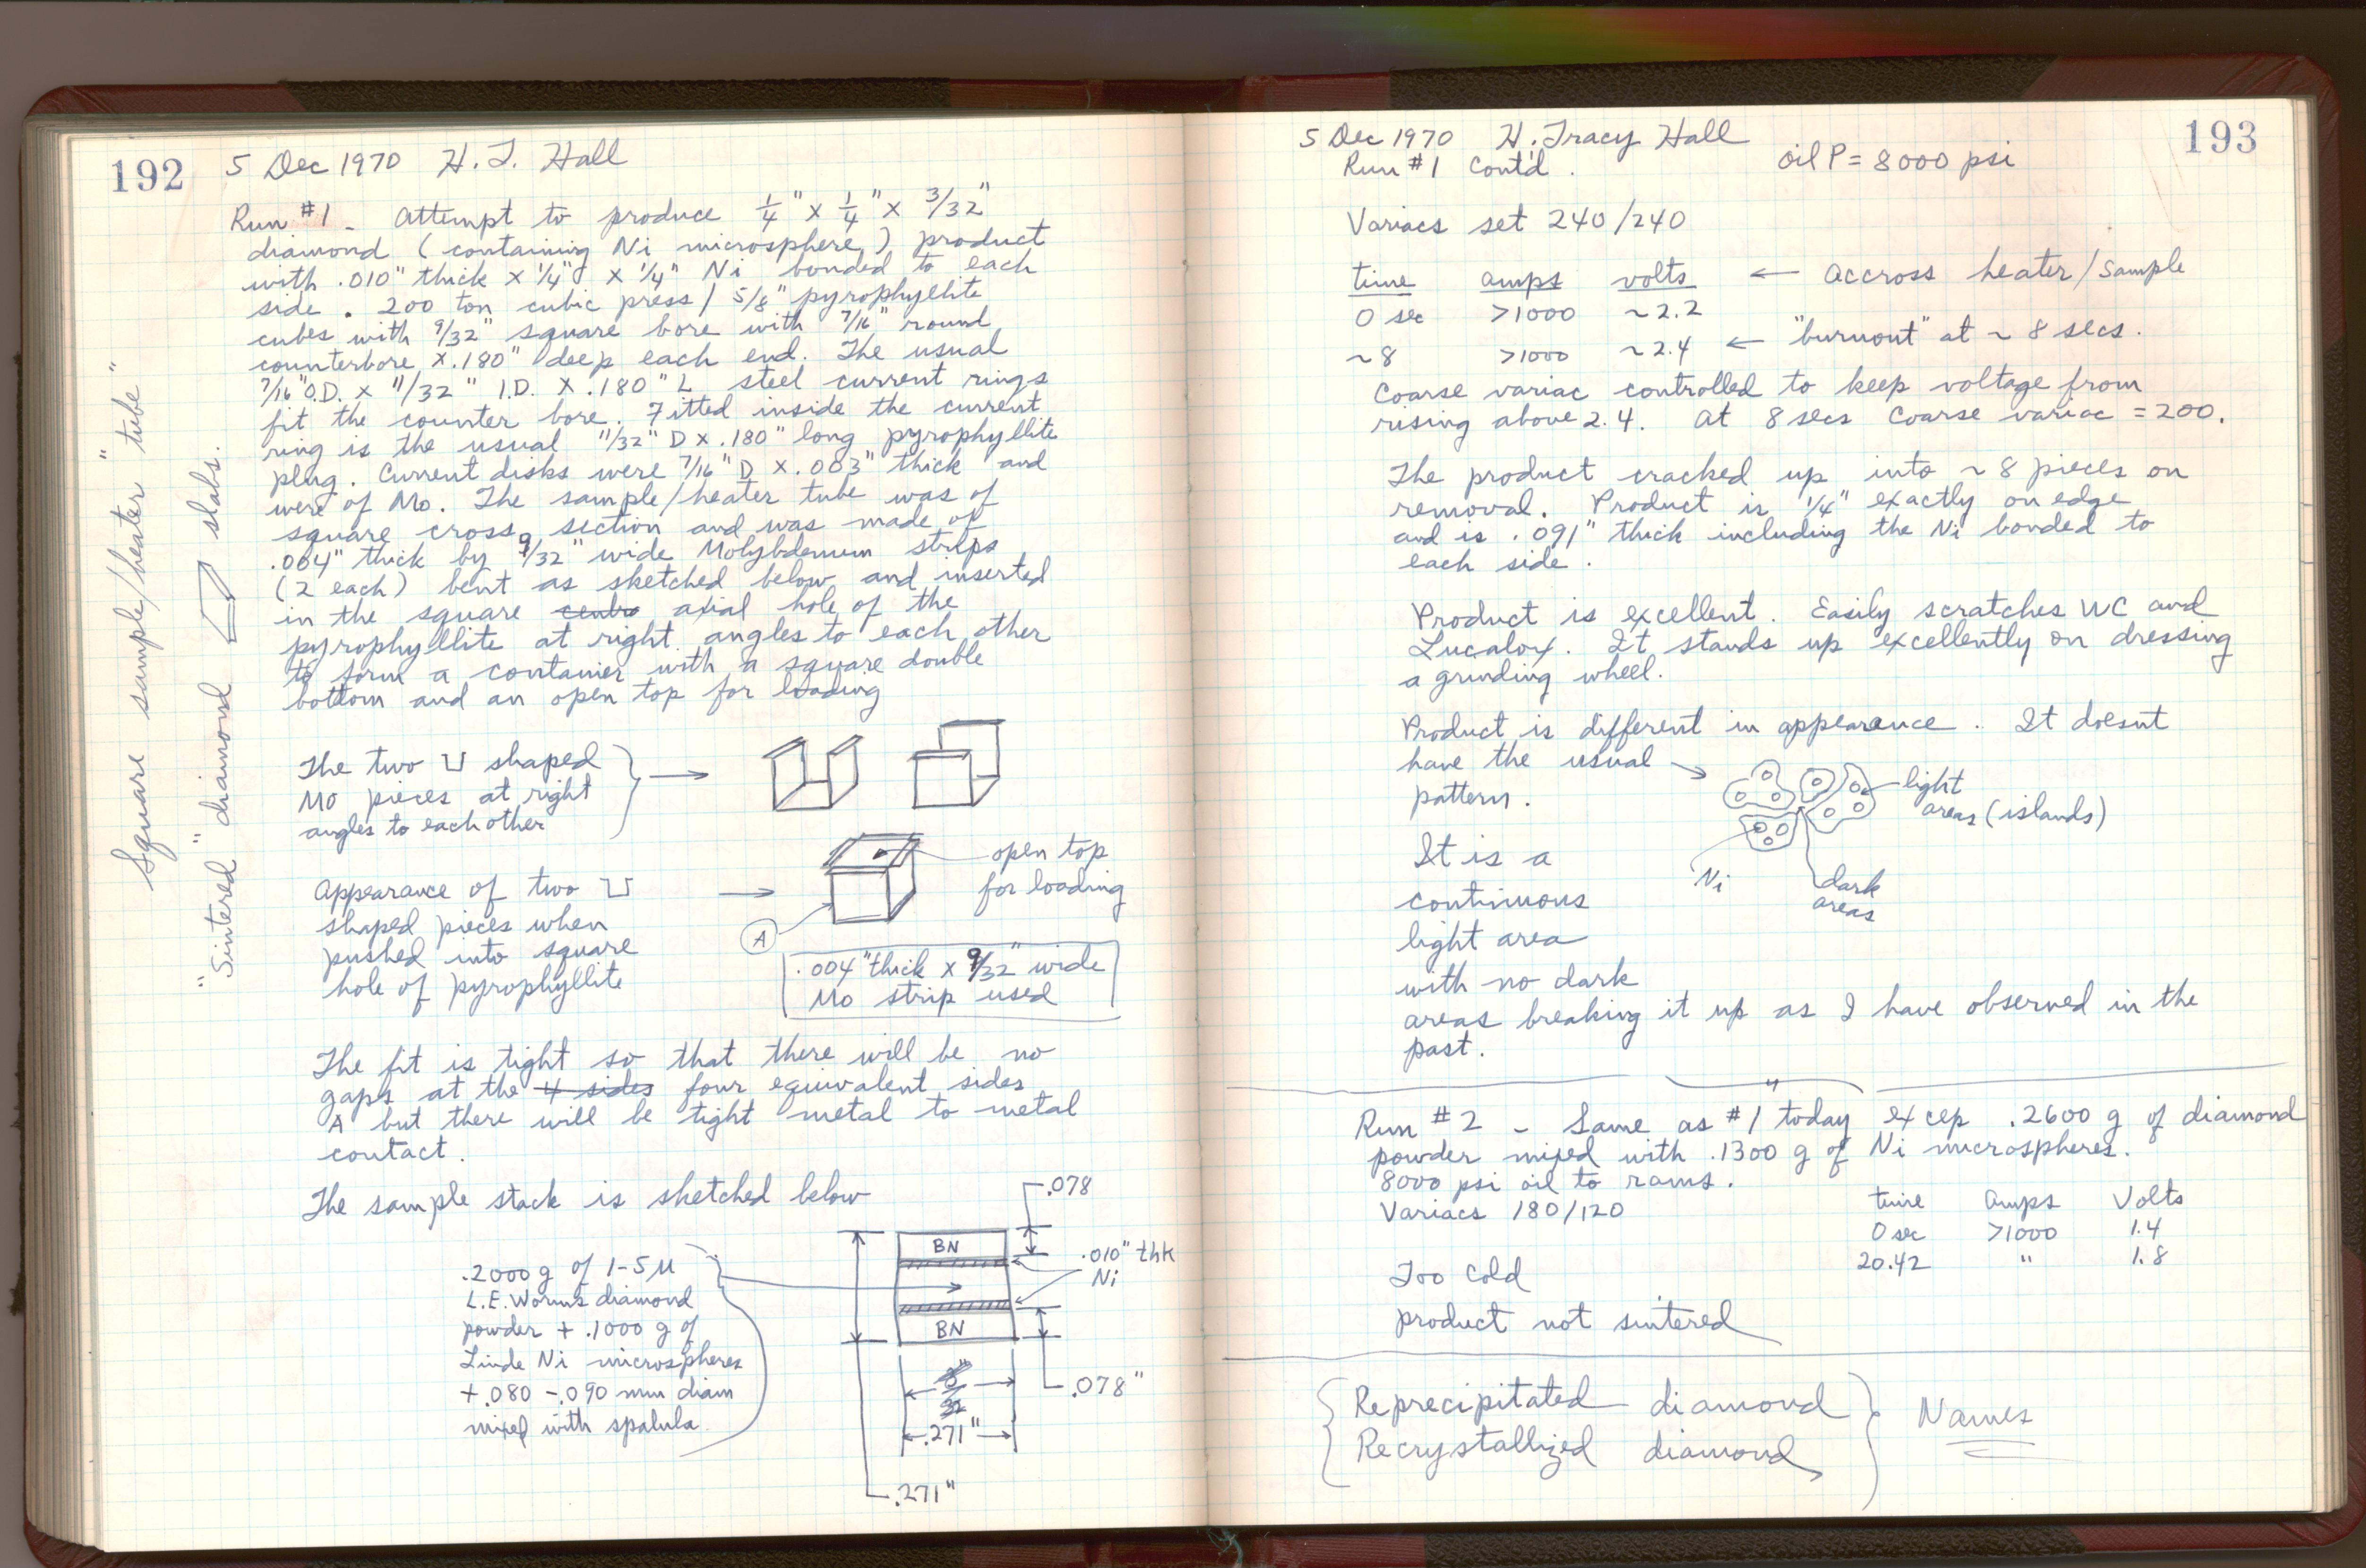 192 5 Dec 1970 H.T. Hall
Run #1 - Attempt to produce 1/4" x 1/4" x 3/32"
diamond (containing Ni microsphere) product
with .010" thick x 1/4" x 1/4" Ni bonded to each
side. 200 ton cubic press / 5/8" pyrophyllite
cubes with 9/32" square bore with 7/16" round
counterbore x .180" deep each end. The usual
7/16" O.D. x 11/32" I.D. x .180" L steel current rings
fit the counter bore. Fitted inside the current
ring is the usual 11/32" D x .180" long pyrophyllite
plug. Current disks were 7/16" D x .003" thick and
were of Mo. The sample/heater tube was of
square cross section and was made of
.004" thick by 9/32" wide Molybdenum strips
(2 each) bent as sketched below and inserted
in the square axial hole of the
pyrophyllite at right angles to each other
to form a container with a square double
bottom and an open top for loading
The two ⊔ shaped
Mo pieces at right
angles to each other
Appearance of two ⊔
shaped pieces when
pushed into square
hole of pyrophyllite
open top
for loading
A
.004" thick x 9/32" wide
Mo strip used
The fit is tight so that there will be no
gaps at the 4 sides four equivalent sides
A but there will be tight metal to metal
contact.
The sample stack is sketched below
.2000 g of 1-5 µ
L.E. Worms diamond
powder + .1000 g of
Linde Ni microspheres
+.080 -.090 mm diam
mixed with spatula.
.078
BN
.010" thk
Ni
BN
.078"
.271"
.271"
Square sample/heater "tube"
"Sintered" diamond slabs.
5 Dec 1970 H. Tracy Hall 193
Run #1 Cont'd. Oil P = 8000 psi
Variacs set 240/240
time amps volts ← Accross heater/sample
0 sec >1000 ~2.2
~8 >1000 ~2.4 ← "burnout" at ~ 8 secs.
Coarse variac controlled to keep voltage from
rising above 2.4. At 8 secs Coarse variac = 200.
The product cracked up into ~ 8 pieces on
removal. Product is 1/4" exactly on edge
and is .091" thick including the Ni bonded to
each side.
Product is excellent. Easily scratches WC and
Lucalox. It stands up excellently on dressing
a grinding wheel.
Product is different in appearance. It doesnt
have the usual →
pattern.
light
areas (islands)
Ni
dark
areas
It is a
continuous
light area
with no dark
areas breaking it up as I have observed in the
past.
Run #2 - Same as #1 today excep .2600 g of diamond
powder mixed with .1300 g of Ni microspheres.
8000 psi oil to rams.
Variacs 180/120
time Amps Volts
0 sec >1000 1.4
20.42 " 1.8
Too cold
product not sintered
Reprecipitated diamond
Recrystallized diamond
Names